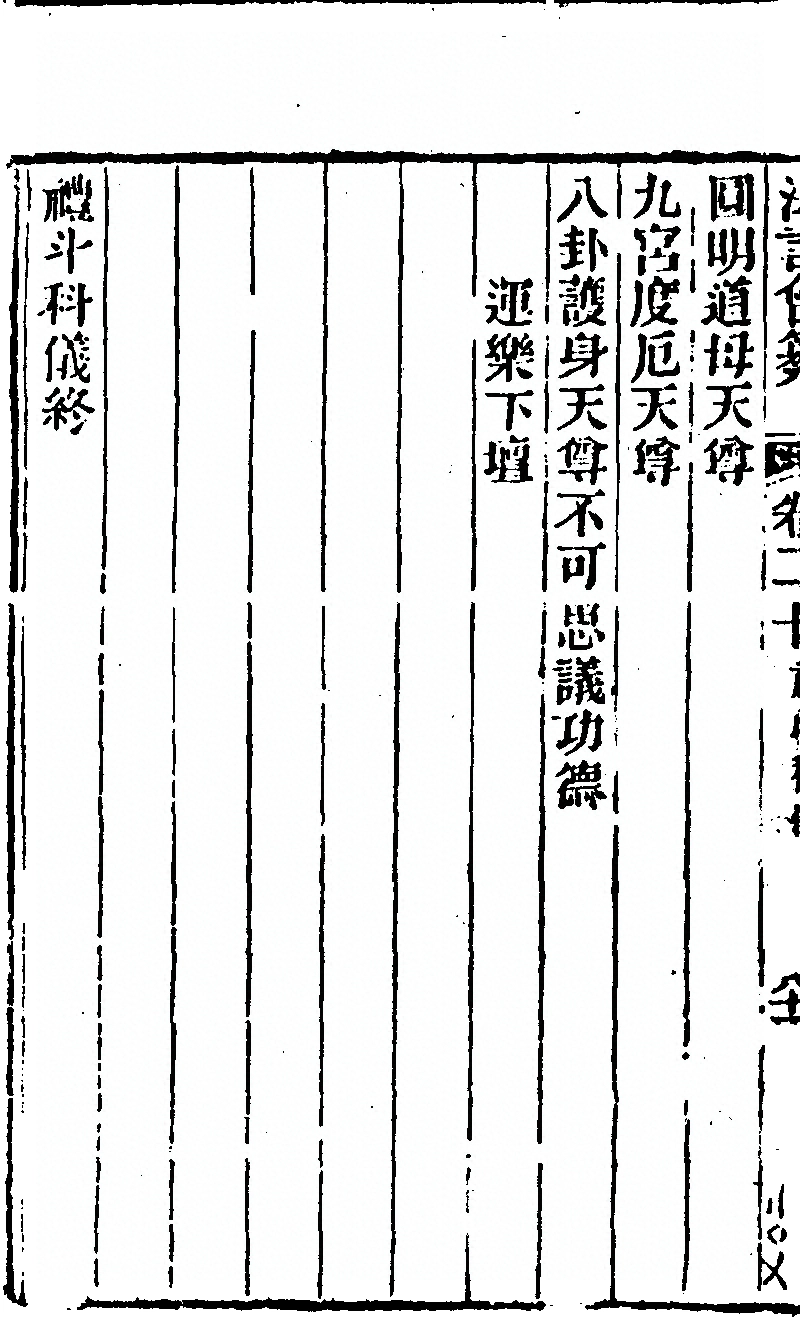 圓明道母天尊
九宮度厄天尊
八卦護身天尊不可思議功德
運樂下壇
禮斗科儀終